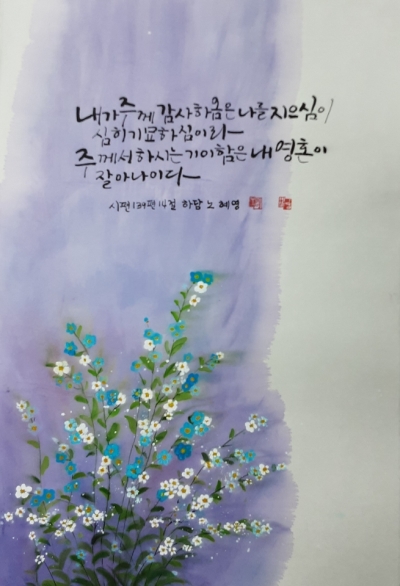 내가 주께 감사하옴은 나를 지으심이
심히 기묘하심이라
주께서 하시는 기이함은 내 영혼이
잘 아나이다
시편 139편 14절 하담 노혜영